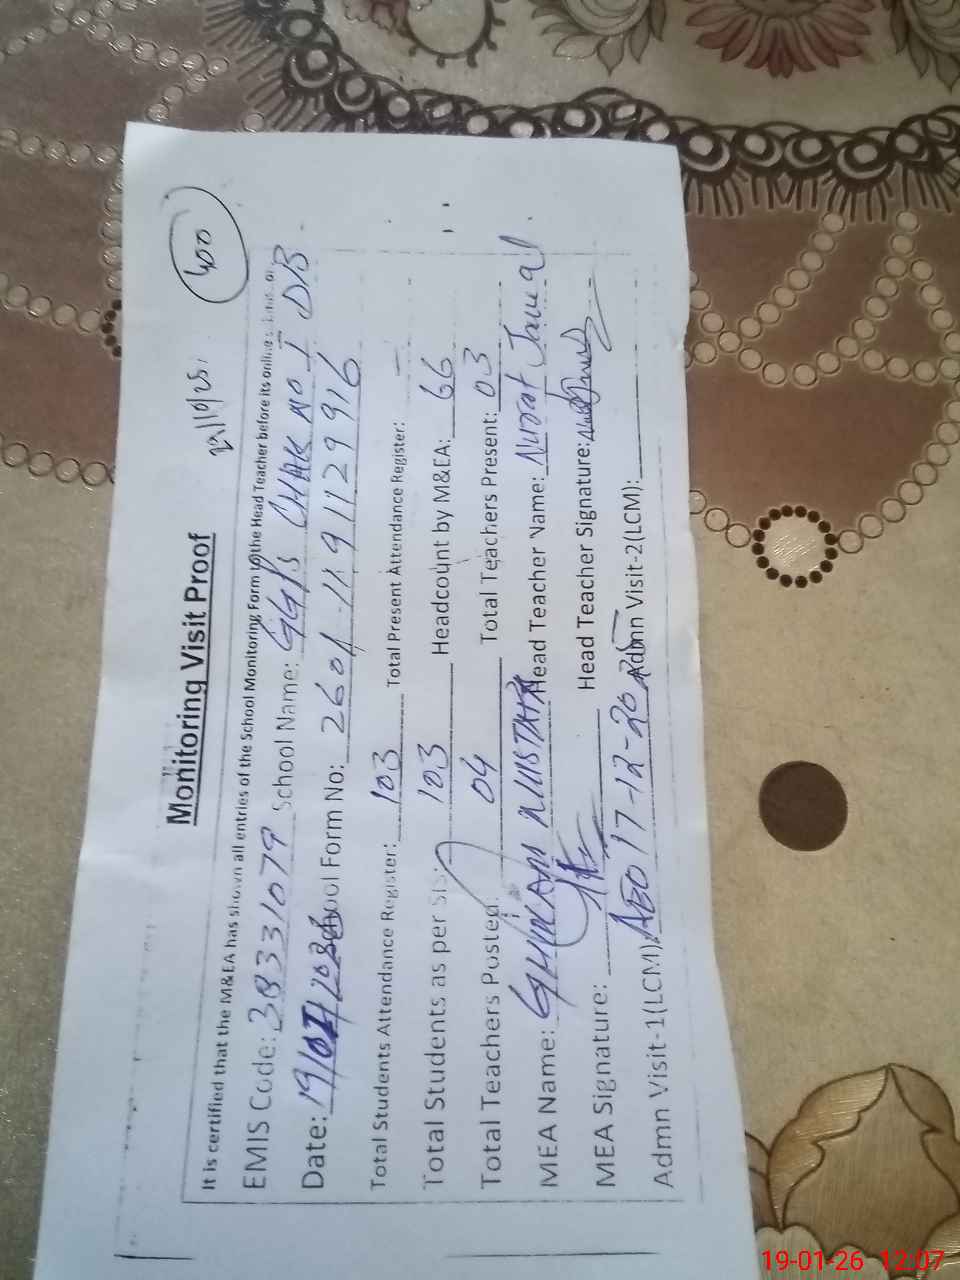 400
Monitoring Visit Proof
It is certified that the M&EA has shown all entries of the School Monitoring Form to the Head Teacher before its online
EMIS Code: 38331079 School Name: GGPS CHAK NO I DB
Date: 19/01/2026 School Form No: 2601 119 1129916
Total Students Attendance Register: 103 Total Present Attendance Register: —
Total Students as per SIS: 103 Headcount by M&EA: 66
Total Teachers Posted: 04 Total Teachers Present: 03
MEA Name: GHULAM MUSTAFA Head Teacher Name: Nusrat Jamal
MEA Signature: Head Teacher Signature:
Admn Visit-1(LCM): AEO 17-12-2025 Admn Visit-2(LCM):
19-01-26 12:07